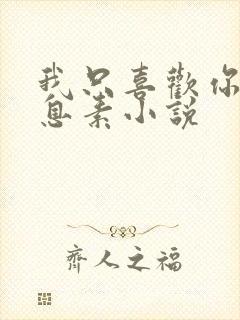 我只喜歡你
息素小説
齊人之福